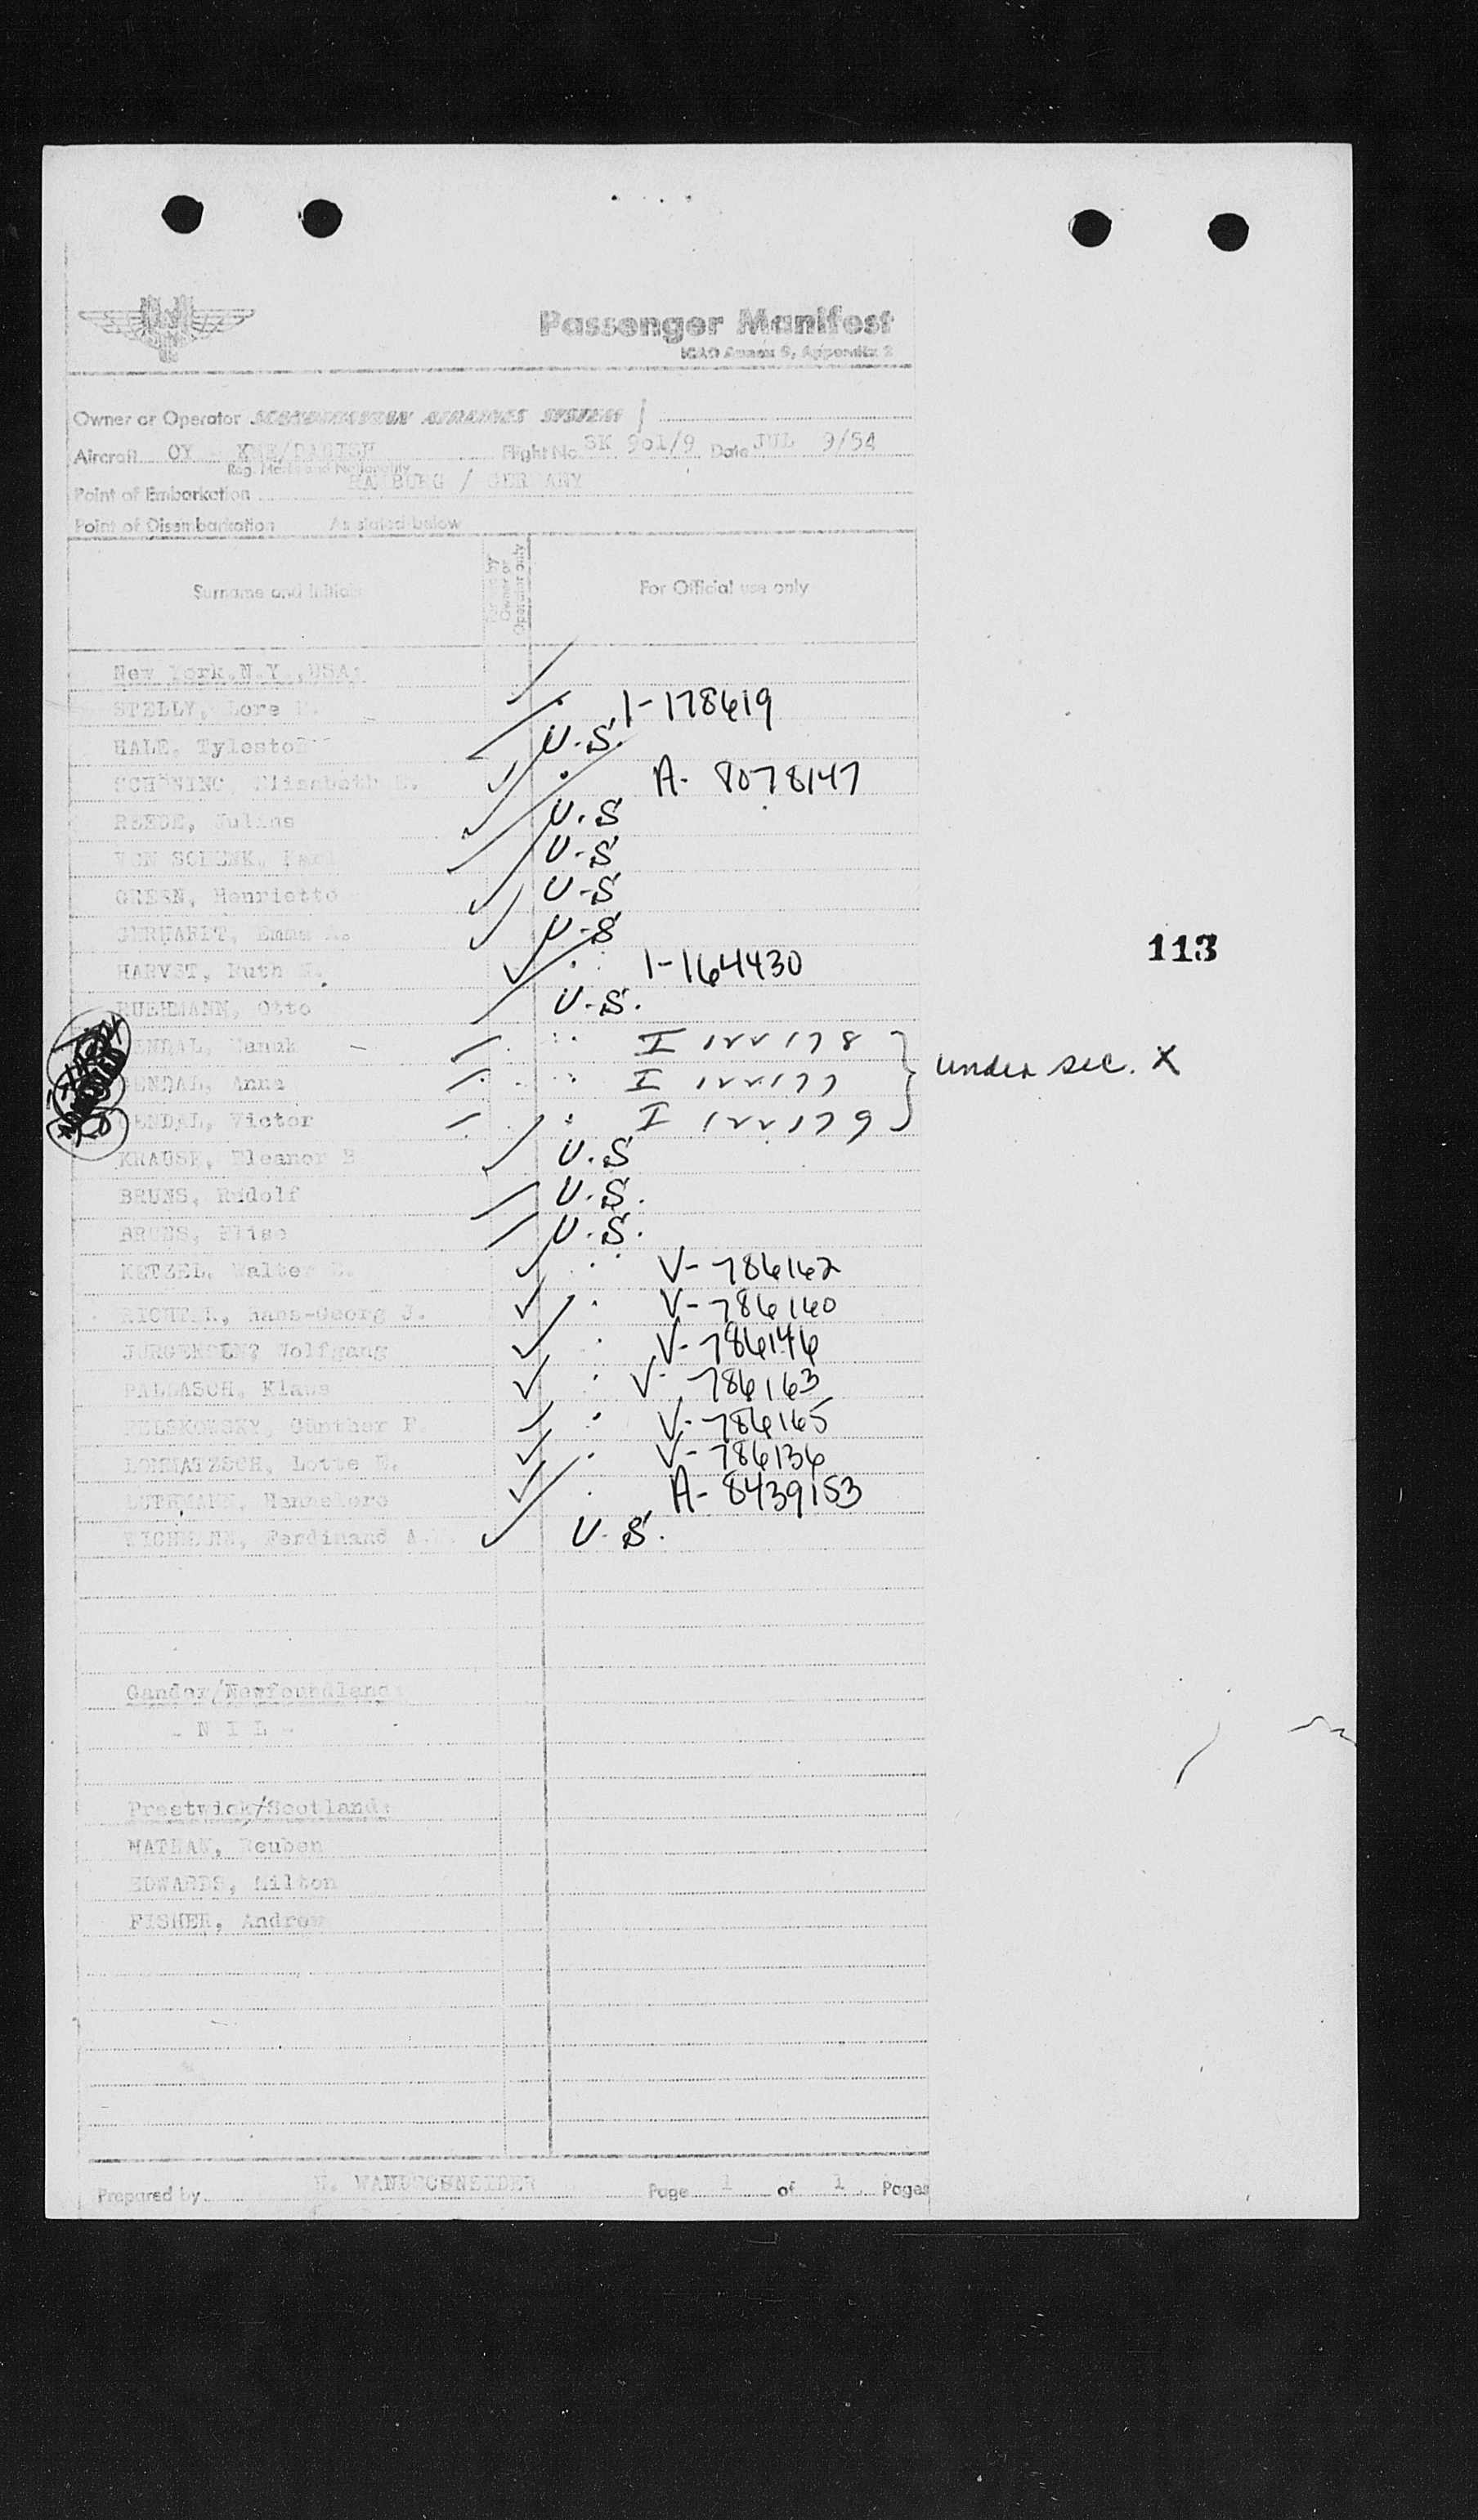 Passenger Manifest
ICAO Annex 9, Appendix 2
Owner or Operator SCANDINAVIAN AIRLINES SYSTEM
Aircraft OY - Flight No. SK 901/9 Date JUL 9/54
Reg. Marks and Nationality
Point of Embarkation HAMBURG / GERMANY
Point of Disembarkation As stated below
Surname and Initials For use by Owner or Operator only For Official use only
New York, N.Y., USA:
STELLY, Lore I-178619
HALE, U.S.
SCHÖNING, Elisabeth A- 8078147
REEDE, Julius U.S
VON U-S
GREEN, Henriette U-S
GERHARDT, Emma U-S
113
HARVST, Ruth I-164430
Otto U.S.
I 122178
Anna I 122177 under sec. X
Victor I 122179
KRAUSE, Eleanor B U.S
BRUNS, Rudolf U.S.
BRUNS, Elise U.S.
KETZEL, Walter V-786162
RICHTER, Hans-Georg J. V-786160
JURGENSEN? Wolfgang V-786146
PALLASCH, Klaus V- 786163
Günther P. V-786165
LOMMATZSCH, Lotte V-786136
Hannelore A- 8439153
Ferdinand A. U.S.
Gander/Newfoundland:
- N I L -
Prestwick/Scotland:
Reuben
EDWARDS, Milton
FISHER, Andrew
Prepared by WANDSCHNEIDER Page 1 of 1 Pages